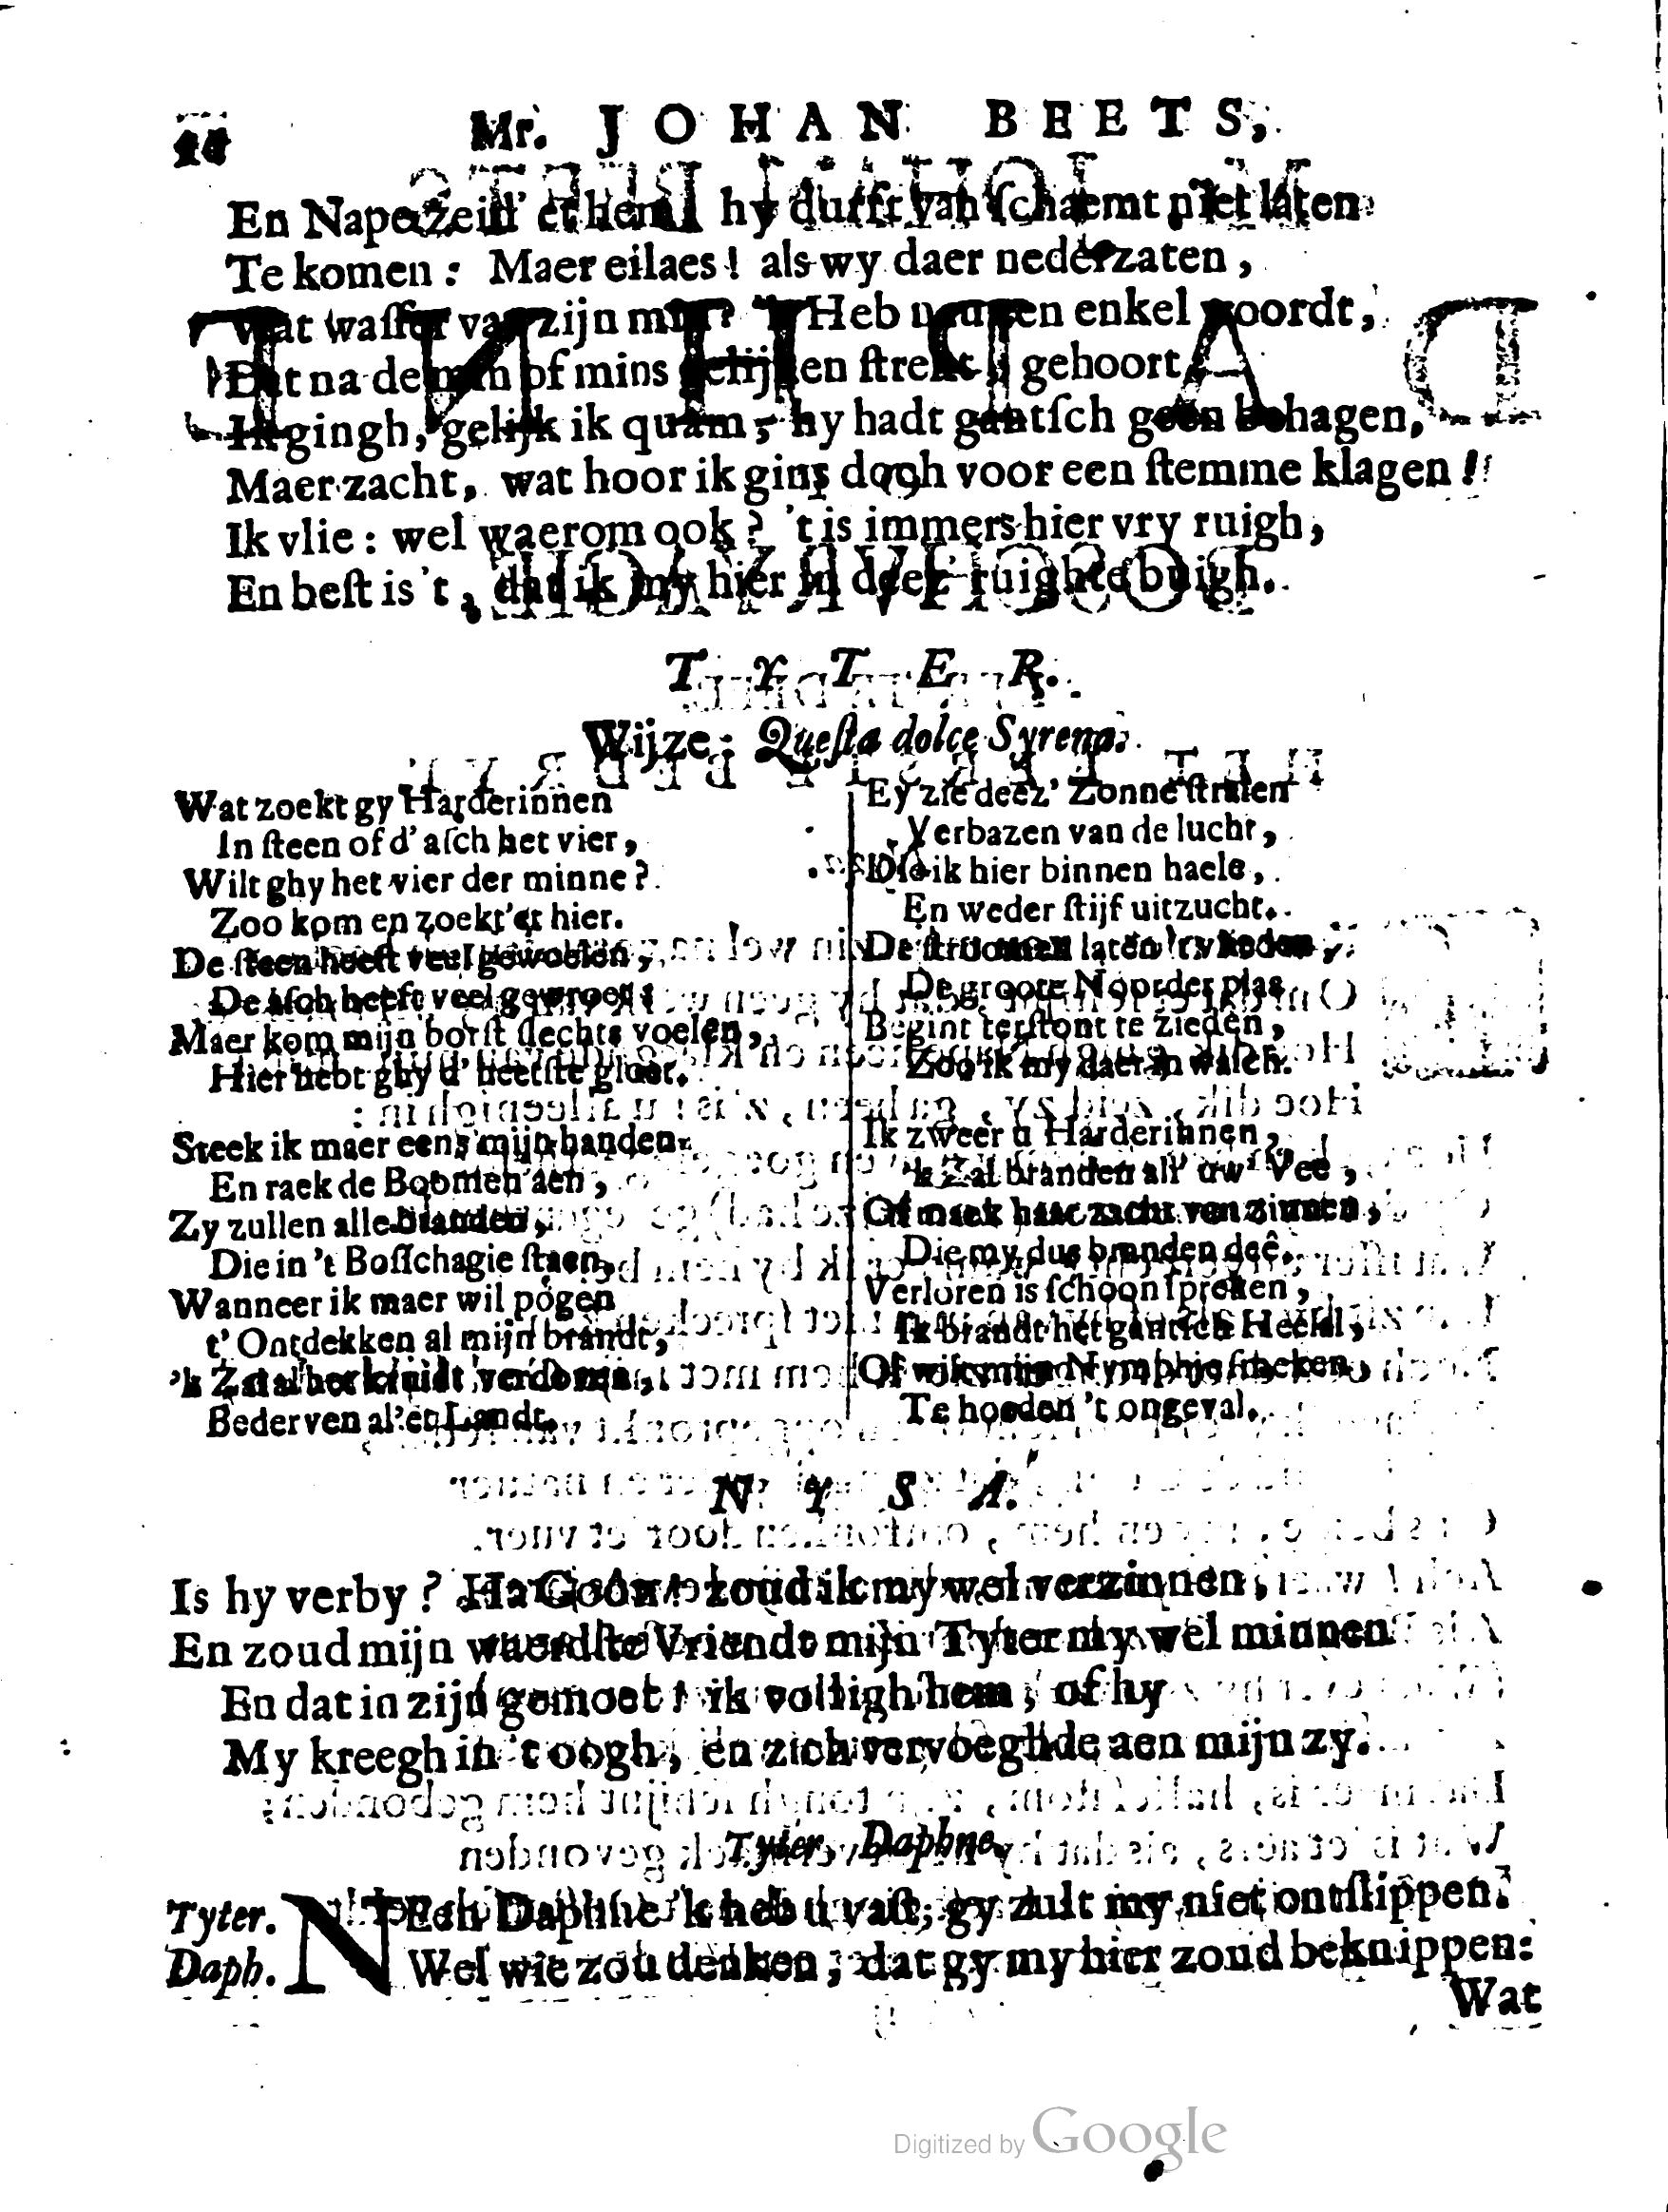 Mr. JOHAN BEETS,
En Nape zeid' et hem hy durft van ſchaemt niet laten
Te komen: Maer eilaes! als wy daer nederzaten,
Wat waſſer van zijn min? Heb nu een enkel woordt,
Dat na de min of mins gelijken ſtrekt, gehoort
Ik gingh, gelijk ik quam, hy hadt gantſch geen behagen,
Maer zacht, wat hoor ik gins doch voor een ſtemme klagen!
Ik vlie: wel waerom ook? 't is immers hier vry ruigh,
En beſt is 't, dat ik my hier in deez' ruighte buigh.
TYTER.
Wijze: Queſta dolce Syrena.
Wat zoekt gy Harderinnen
In ſteen of d' aſch het vier,
Wilt ghy het vier der minne?
Zoo kom en zoekt'et hier.
De ſteen heeft veel gewoelen,
De aſch heeft veel
Maer kom mijn borſt ſlechts voelen,
Hier hebt ghy d' heetſte gloet.
Steek ik maer eens mijn handen
En raek de Boomen aen,
Zy zullen alle branden,
Die in 't Boſſchagie ſtaen,
Wanneer ik maer wil pógen
t' Ontdekken al mijn brandt,
'k Zal al het kruidt
Bederven al 'et Landt.
Ey zie deez' Zonne ſtralen
Verbazen van de lucht,
Die ik hier binnen haele,
En weder ſtijf uitzucht.
De ſtroomen laten
De groote Noorder plas
Begint terſtont te zieden,
Zoo ik my daer in waſch.
Ik zweer u Harderinnen,
'k Zal branden all' uw' Vee,
Of maek haer zacht van zinnen,
Die my dus branden deê.
Verloren is ſchoon ſpreken,
Ik brandt het gantſch Heelal,
Of wilt mijn Nymphje ſmeken,
Te hoeden 't ongeval.
NYSA.
Is hy verby? Ha Goôn! zoud ik my wel verzinnen,
En zoud mijn waerdſte Vriendt mijn Tyter my wel minnen
En dat in zijn gemoet! ik volligh hem, of hy
My kreegh in 't oogh, en zich vervoeghde aen mijn zy.
Tyter. Daphne.
Tyter. NEen Daphne 'k heb u vaſt, gy zult my niet ontſlippen.
Daph. Wel wie zou denken, dat gy my hier zoud beknippen:
Wat
Digitized by Google